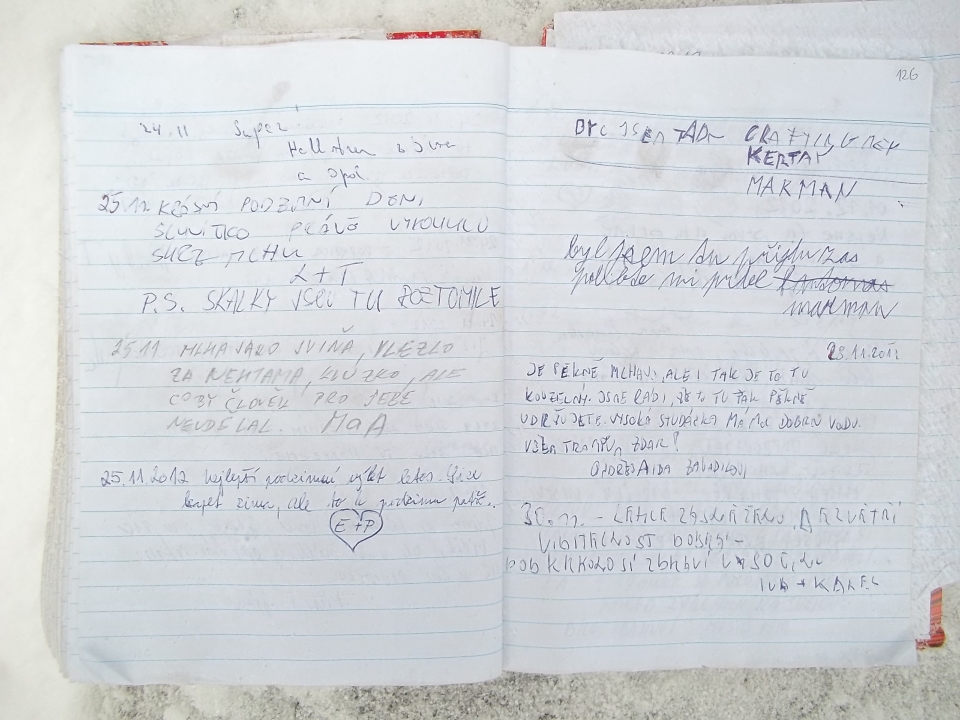 24.11 Super
a spol.
25.11. KRÁSNÝ PODZIMNÍ DEN,
SLUNÍTKO PRÁVĚ VYKOUKLO
SKRZ MLHU
L+T
P.S. SKALKY JSOU TU ROZTOMILÉ
25.11 MLHA JAKO SVIŇA, VLEZLO
ZA NEHTAMA, KLUZKO, ALE
COBY ČLOVEK PRO SEBE
NEUDĚLAL. MaA
25.11.2012 nejlepší podzimní výlet letos. Sice
kopet zima, ale to k podzimu patří..
E+P
126
BYL JSEM TADY
KERTAY
MARMAN
byl jsem tu přijdu zas
marman
29.11.2012
JE PĚKNĚ MLHAVO, ALE I TAK JE TO TU
KOUZELNÝ. JSME RÁDI, ŽE TO TU TAK PĚKNĚ
UDRŽUJETE. VYSOKÁ STUDÁNKA MÁ MOC DOBROU VODU.
VŠEM TRAMPŮM ZDAR!
30.11. - LEHCE ZASNĚŽENO, BEZVĚTŘÍ
VIDITELNOST DOBRÁ -
POD KRKONOŠÍ ZDRAVÍ VYSOČINU
IVA + KAREL